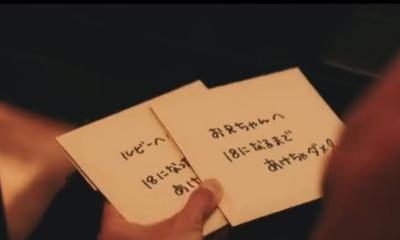 ルビーへ
18になっ
あけ
お兄ちゃんへ
18になるまで
あけちゃダメ